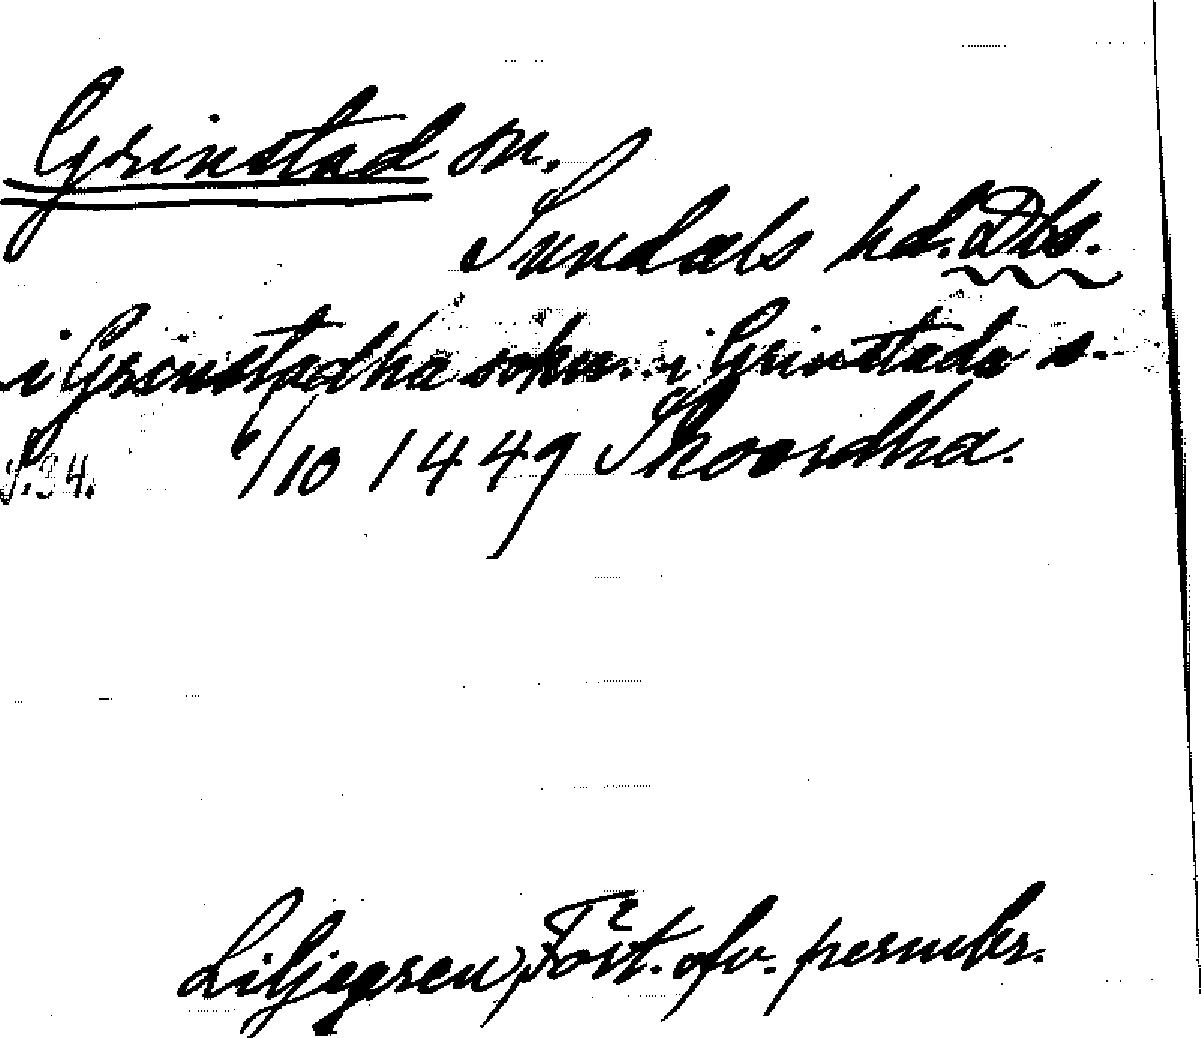 Grinstad sn.
Sundals hd. Dls.
i Grinstadha sokn. i Grinstada s.
S.34. 6/10 1449 Skoordha.
Liljegren, Fört. öfv. permbr.